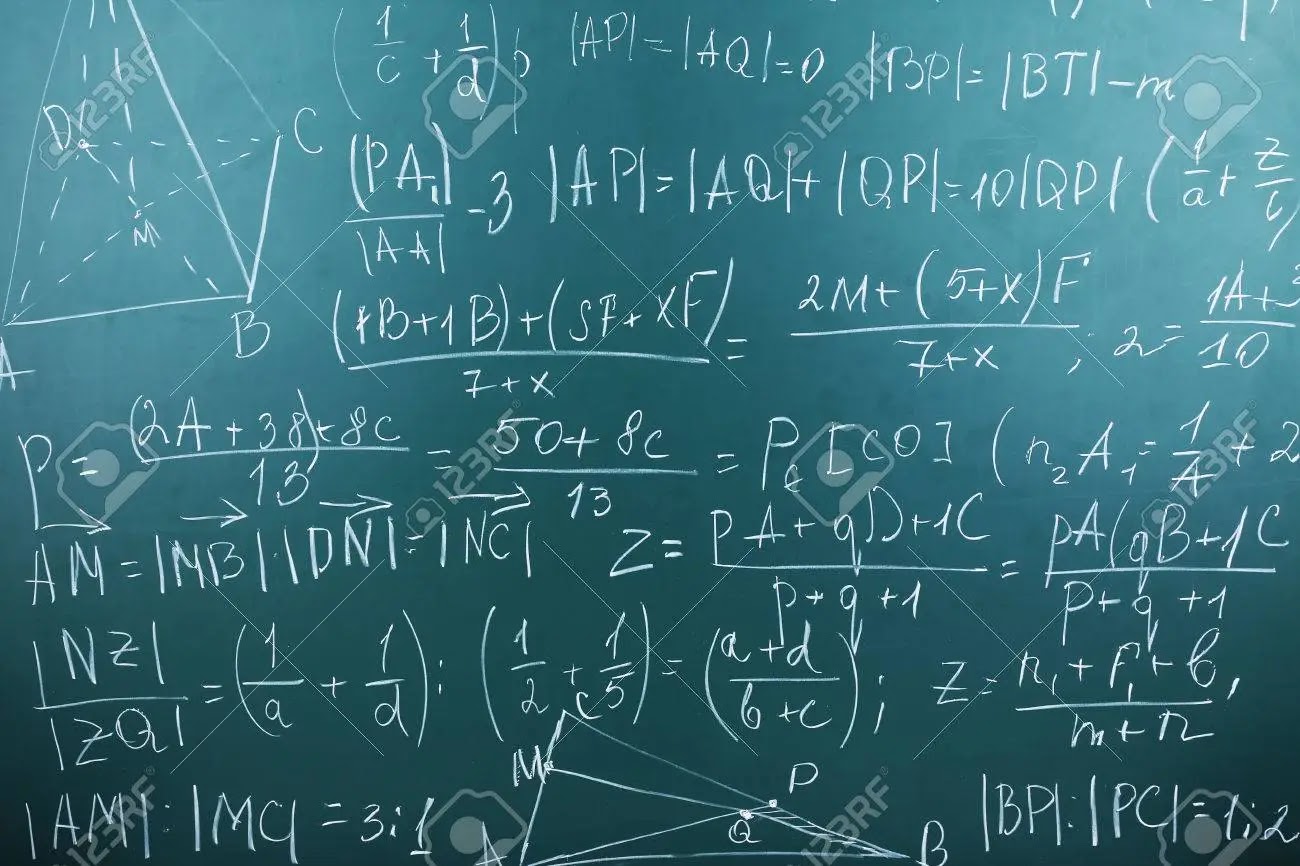 (1/c + 1/d) p |AP| = |AQ| = 0 |BP| = |BT| - m
D C
|PA₁|/|AA| - 3 |AP| = |AQ| + |QP| = 10|QP| (1/a + z/
M
B
A
+ (5F + xF)/7+x = 2M + (5+x)F/7+x ; 2 = 1A+3/10
P = (2A + 38) + 8c/13 = 50 + 8c/13 = P_c [CO] (n₂A₁ = 1/A + 2
AM = |MB| |DN| = |NC| Z = pA + qD + 1C/p+q+1 = pA(qB + 1C/p+q+1
|NZ|/|ZQ| = (1/a + 1/d) : (1/2 + 1/5) = (a+d/b+c) ; Z = n₁ + f₁ + b/m+n ,
C
M P
Q
|AM| : |MC| = 3:1 A B |BP| : |PC| = 1:2
123RF